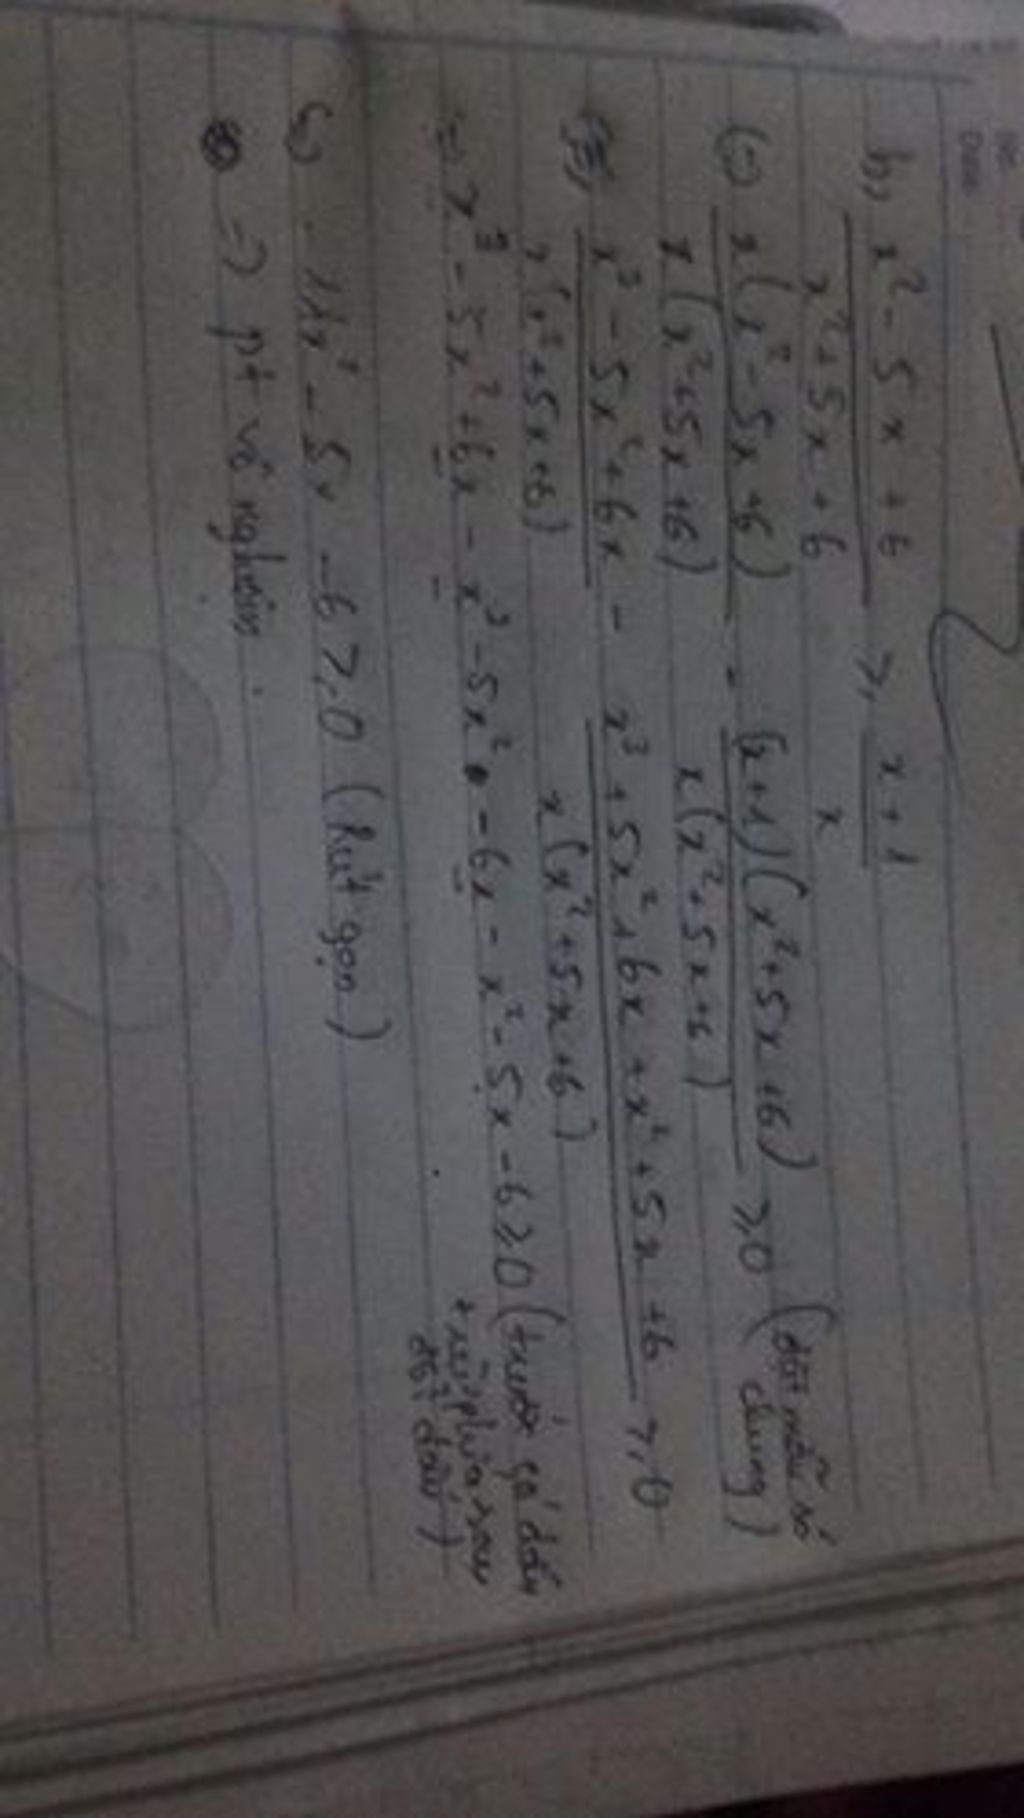 No
Date
b, x² - 5x + 6 / x² + 5x + 6 ⩾ x + 1 / x
(=) x(x² - 5x + 6) / x(x² + 5x + 6) - (x+1)(x² + 5x + 6) / x(x² + 5x + 6) ⩾ 0 (đặt mẫu số chung)
x³ - 5x² + 6x / x(x² + 5x + 6) - x³ + 5x² + 6x + x² + 5x + 6 / x(x² + 5x + 6) ⩾ 0
=> x³ - 5x² + 6x - x³ - 5x² - 6x - x² - 5x - 6 ⩾ 0 (trước có dấu
trừ phía sau
đổi dấu)
11x² - 5x - 6 ⩾ 0 (Rút gọn)
=> pt vô nghiệm.